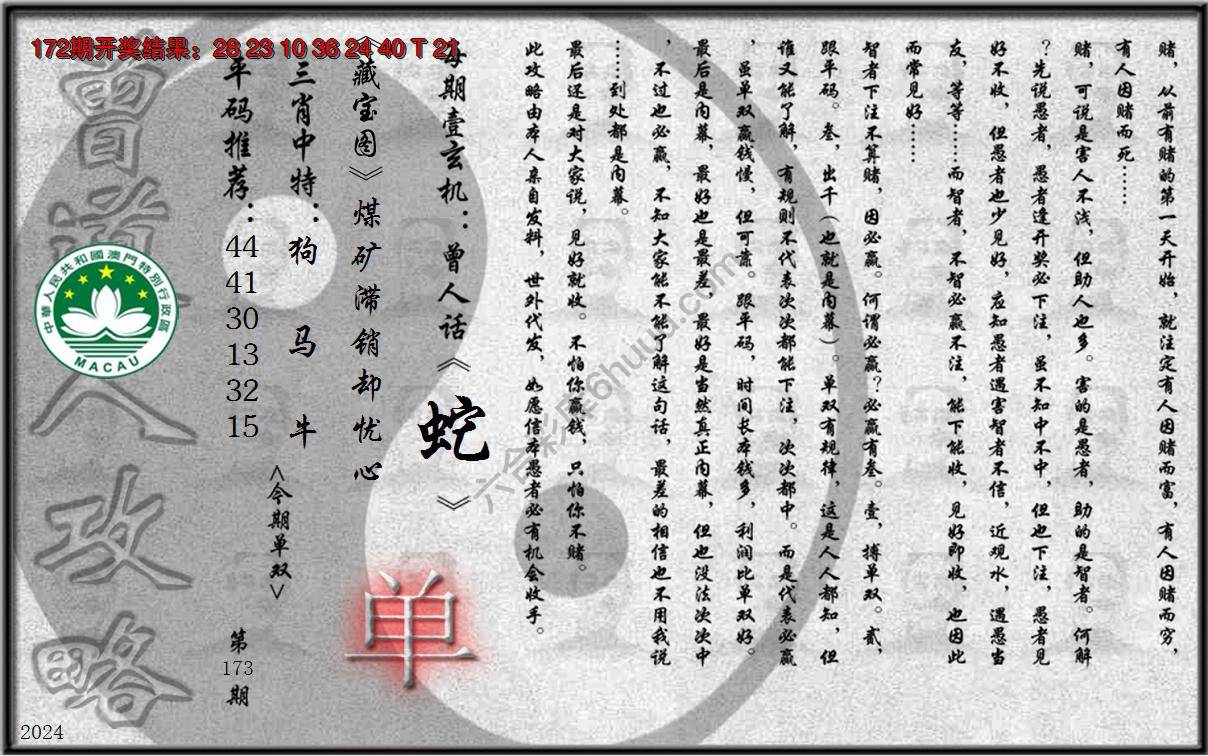 172期开奖结果：28 23 10 36 24 40 T 21
赌，从前有赌的第一天开始，就注定有人因赌而富，有人因赌而穷，
有人因赌而死……
赌，可说是害人不浅，但助人也多。害的是愚者，助的是智者。何解
？先说愚者，愚者逢开奖必下注，虽不知中不中，但也下注，愚者见
好不收，但愚者也少见好，应知愚者遇害智者不信，近观水，遇愚当
友，等等……而智者，不智必赢不注，能下能收，见好即收，也因此
而常见好……
智者下注不算赌，因必赢。何谓必赢？必赢有叁。壹，搏单双。贰，
跟平码。叁，出千（也就是内幕）。单双有规律，这是人人都知，但
谁又能了解，有规则不代表次次都能下注，次次都中。而是代表必赢
，虽单双赢钱慢，但可靠。跟平码，时间长本钱多，利润比单双好。
最后是内幕，最好也是最差，最好是当然真正内幕，但也没法次次中
，不过也必赢，不知大家能不能了解这句话，最差的相信也不用我说
……到处都是内幕。
最后还是对大家说，见好就收。不怕你赢钱，只怕你不赌。
此攻略由本人亲自发料，世外代发，如愿信本愚者必有机会收手。
每期壹玄机：曾人话《蛇》
《藏宝图》煤矿滞销却忧心
三肖中特：狗 马 牛
平码推荐：
44
41
30
13
32
15
<今期单双>
单
第
173
期
曾道人攻略
中華人民共和國澳門特別行政區
MACAU
六合彩库6huuu.com
2024